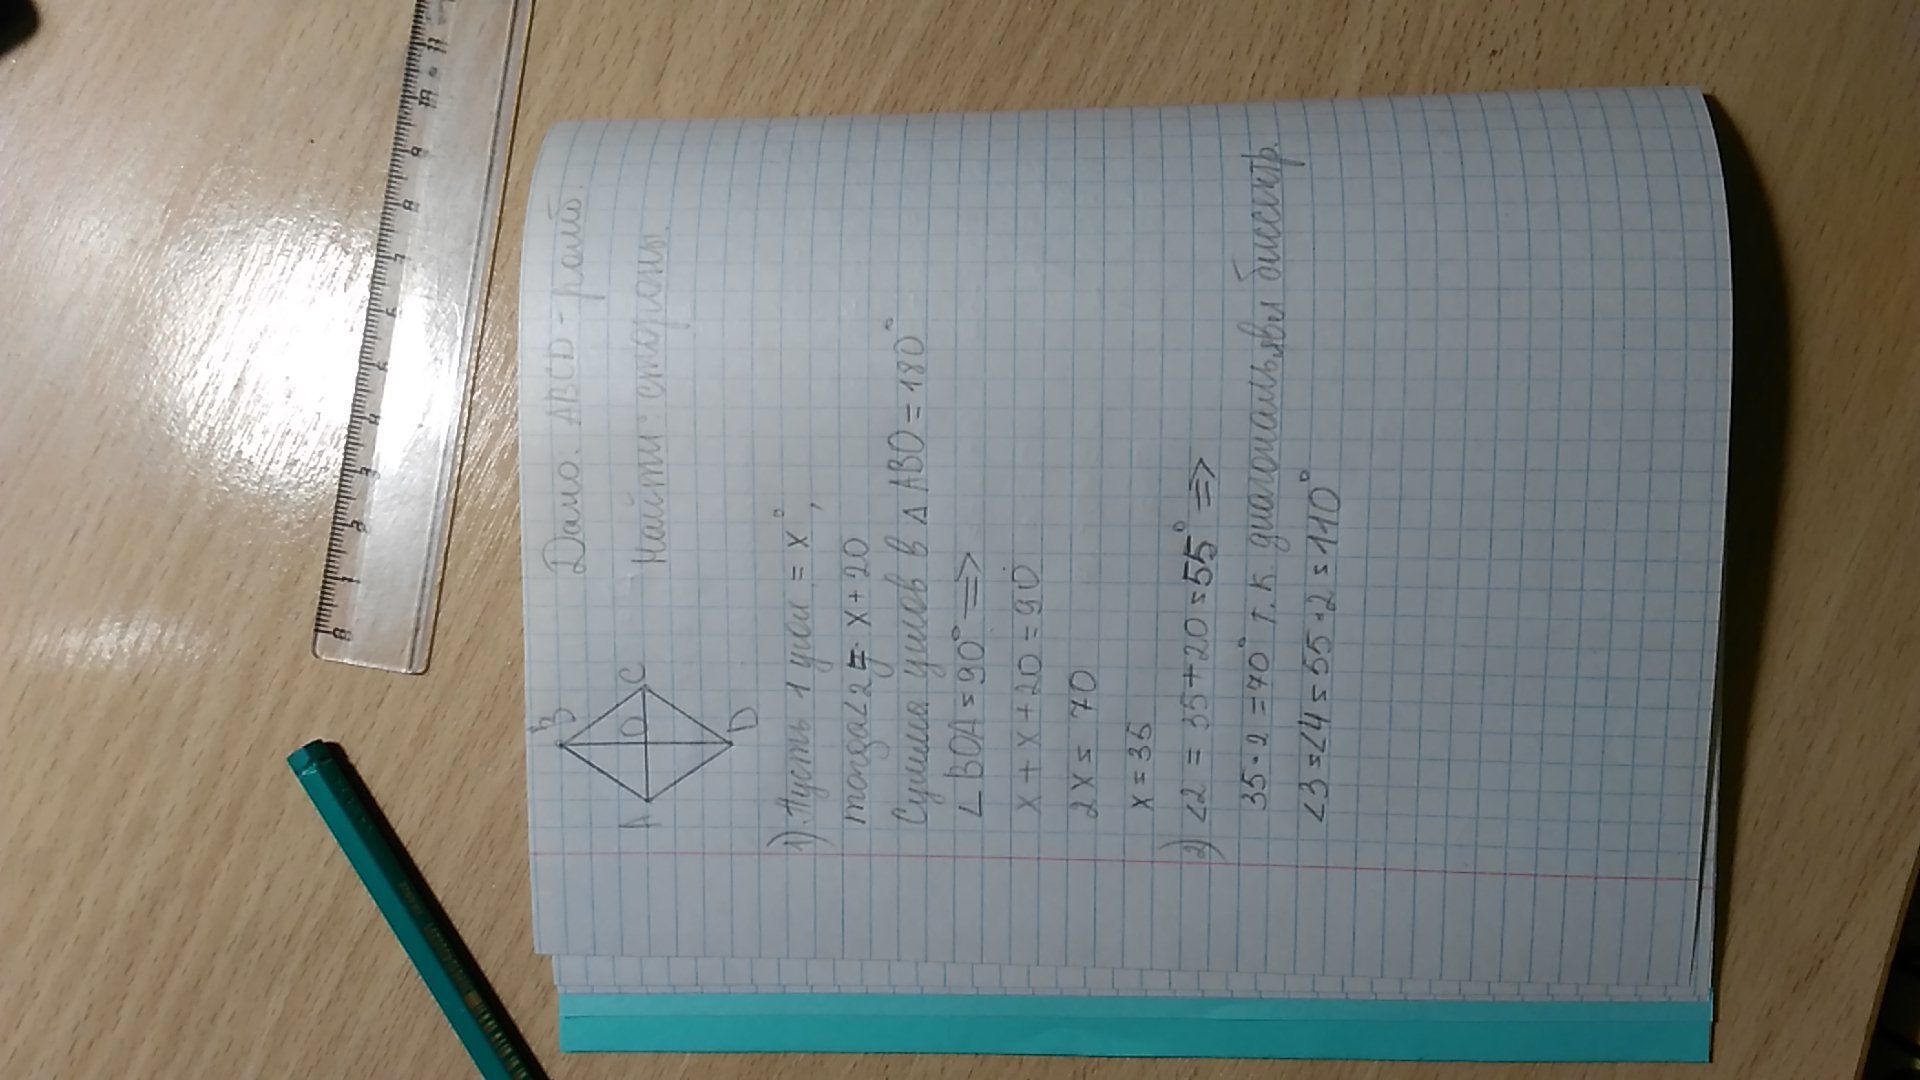 B
A
C
O
D
Дано: ABCD - ромб.
Найти: стороны.
1) Пусть 1 угол = x°,
тогда ∠2 = x + 20
Сумма углов в △ ABO = 180°
∠ BOA = 90° =>
x + x + 20 = 90
2x = 70
x = 35
2) ∠2 = 35 + 20 = 55° =>
35 · 2 = 70° т.к. диагональ явл биссектр.
∠3 = ∠4 = 55 · 2 = 110°
0 1 2 3 4 5 6 7 8 9 10 11